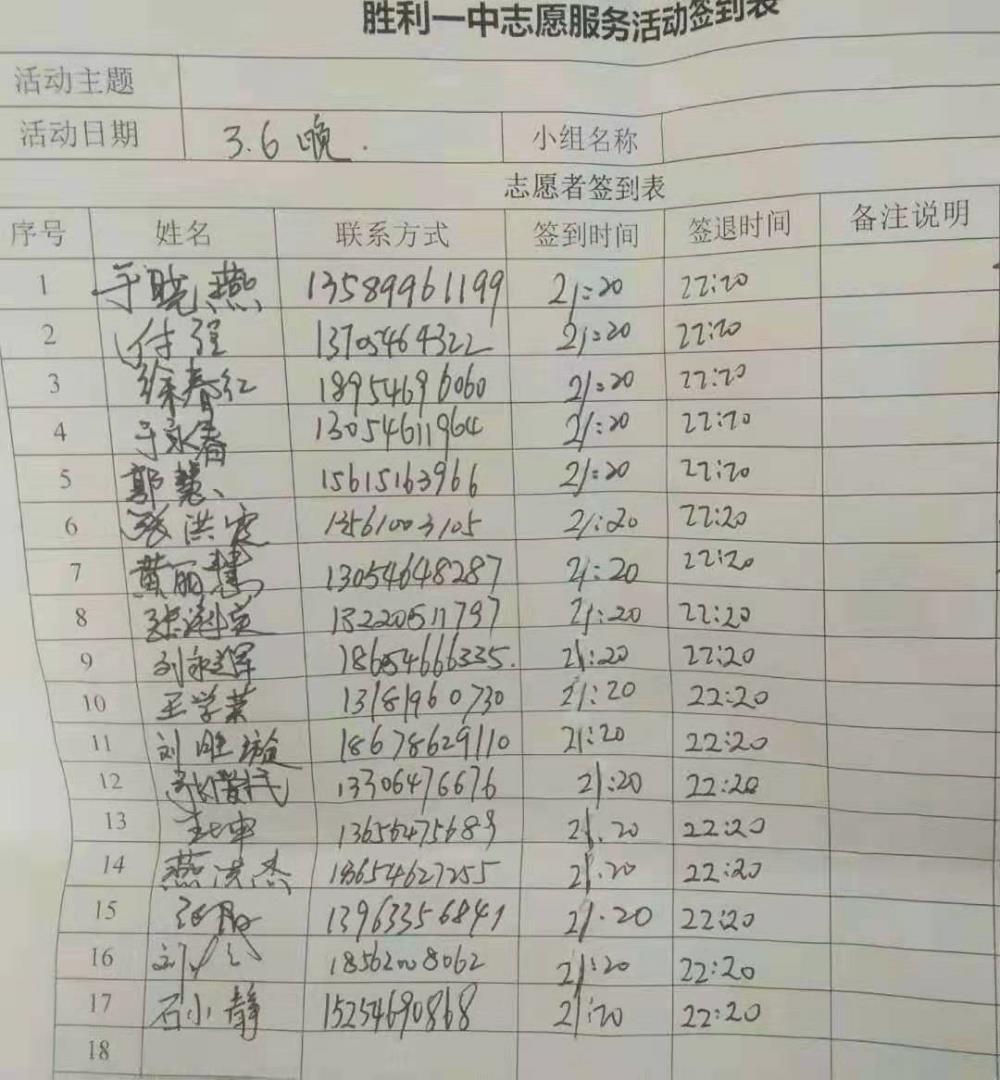 胜利一中志愿服务活动签到表
活动主题
活动日期 3.6 晚. 小组名称
志愿者签到表
序号 姓名 联系方式 签到时间 签退时间 备注说明
1 于晓燕 13589961199 21:20 22:20
2 付强 13705464322 21:20 22:20
3 徐春红 18954696060 21:20 22:20
4 于永春 13054611964 21:20 22:20
5 郭慧 15615163966 21:20 22:20
6 张洪 13561003105 21:20 22:20
7 黄丽 13054648287 21:20 22:20
8 13220511797 21:20 22:20
9 刘永辉 18654666335. 21:20 22:20
10 王学荣 13181960730 21:20 22:20
11 刘胜璇 18678629110 21:20 22:20
12 13306476676 21:20 22:20
13 13656475689 21.20 22:20
14 燕洪杰 18654627255 21.20 22:20
15 13963356841 21.20 22:20
16 刘 18562008062 21:20 22:20
17 石小静 15254690868 21:20 22:20
18